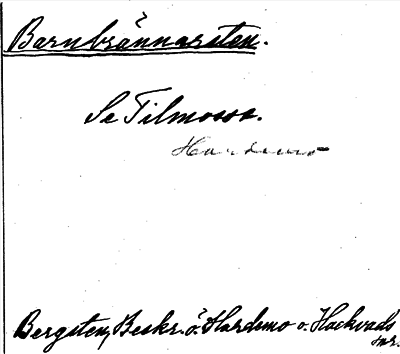 Barnbrännaresten.
Se Tilmossa.
Hardemo
Bergsten, Beskr. ö. Hardemo o. Hackvads
snr.